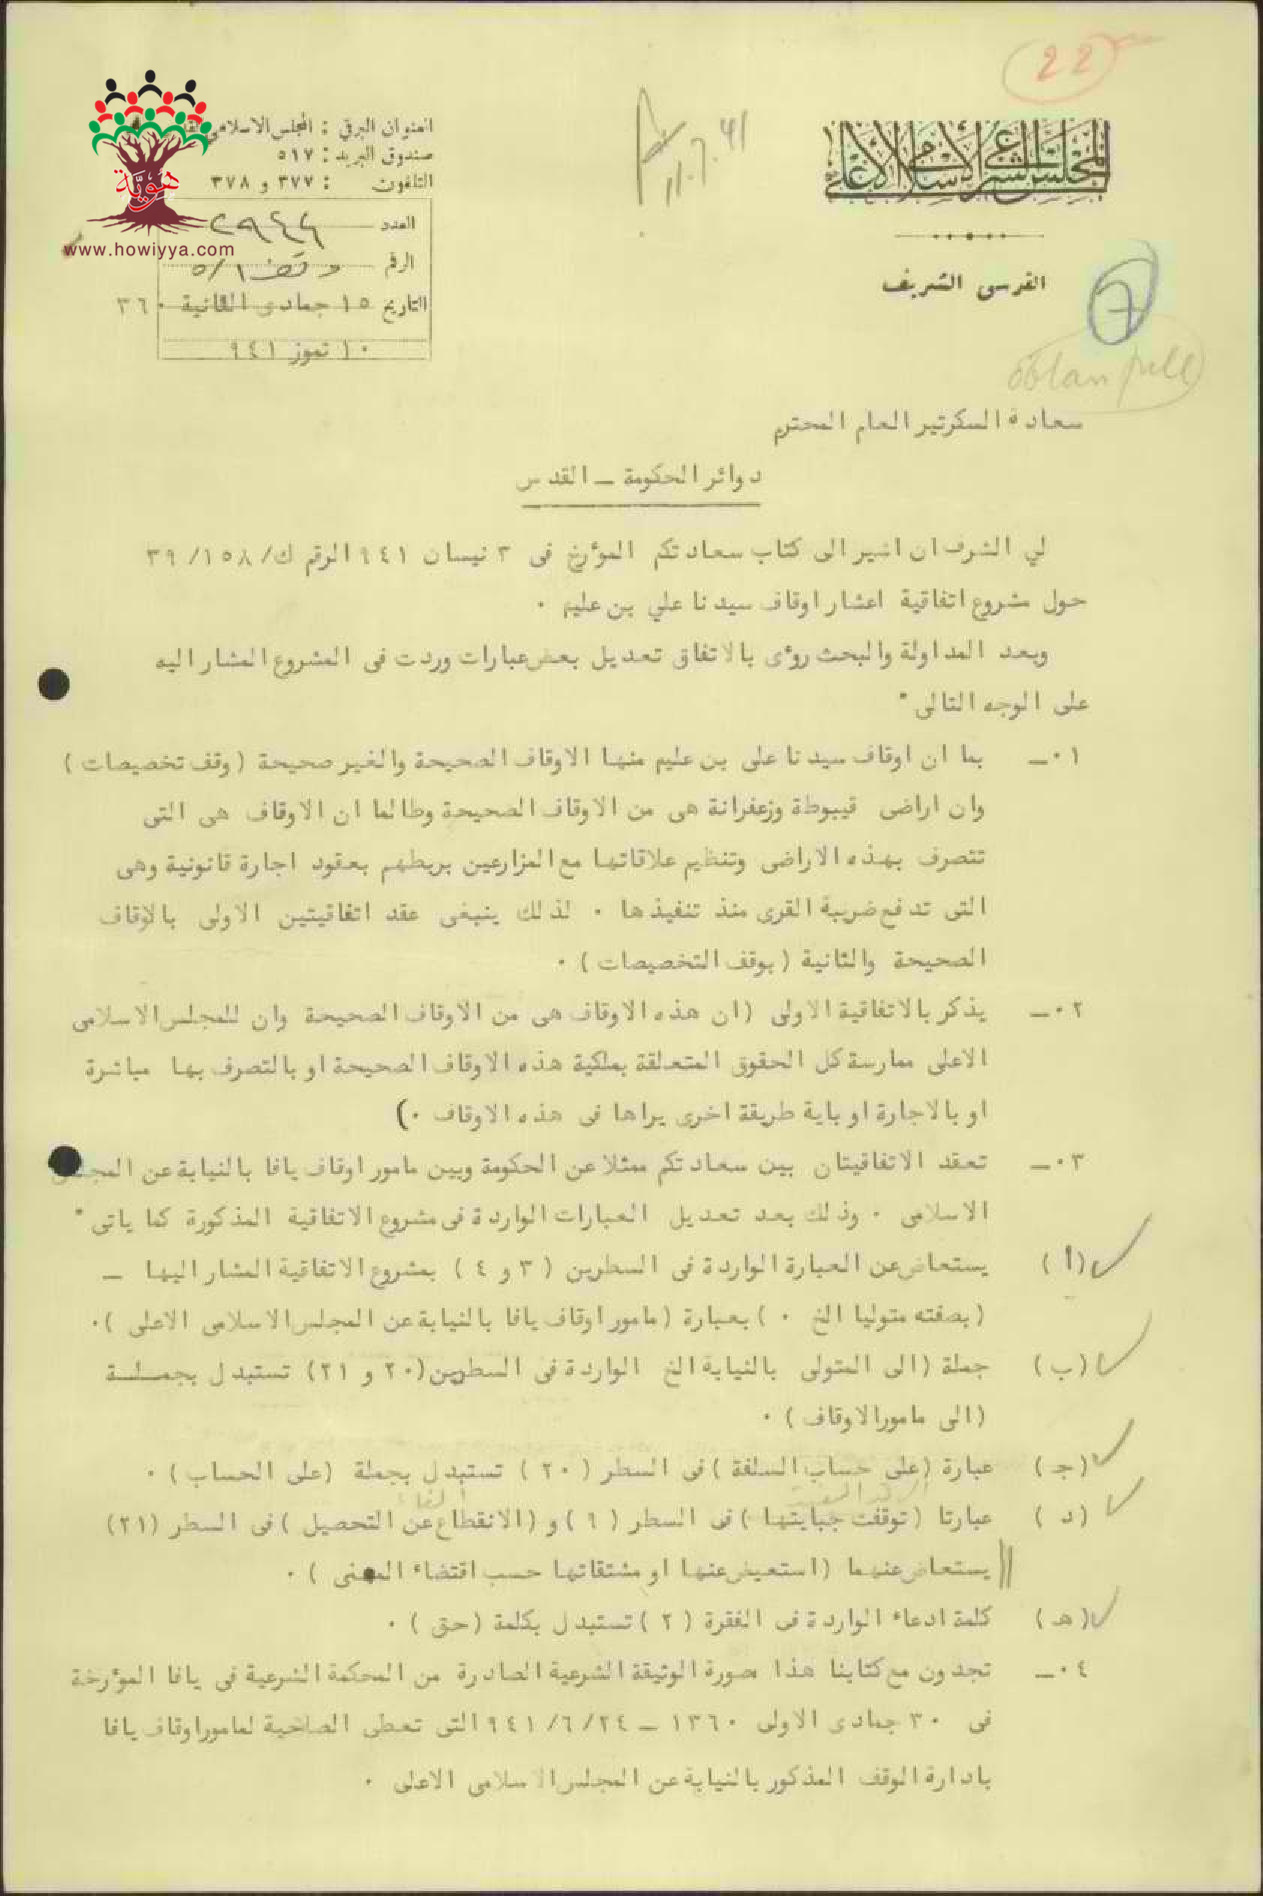 22
المجلس الشرعي الإسلامي الأعلى
القدس الشريف
العنوان البرقي : المجلس الاسلامي
صندوق البريد : ٥١٧
التلفون : ٣٧٧ و ٣٧٨
هوية
www.howiyya.com
العدد ٢٩٤٤
الرقم وقف ٥/١
التاريخ ١٥ جمادى الثانية ٣٦٠
١٠ تموز ٩٤١
11.7.41
7
سعادة السكرتير العام المحترم
دوائر الحكومة ـ القدس
لي الشرف ان اشير الى كتاب سعادتكم المؤرخ فى ٣ نيسان ٩٤١ الرقم ك/١٥٨/٣٩
حول مشروع اتفاقية اعشار اوقاف سيدنا علي بن عليم ٠
وبعد المداولة والبحث رؤى بالاتفاق تعديل بعض عبارات وردت فى المشروع المشار اليه
على الوجه التالى ٠
٠١ـ بما ان اوقاف سيدنا على بن عليم منها الاوقاف الصحيحة والغير صحيحة (وقف تخصيصات)
وان اراضى قيبوطة وزعفرانة هى من الاوقاف الصحيحة وطالما ان الاوقاف هى التى
تتصرف بهذه الاراضى وتنظيم علاقاتها مع المزارعين بربطهم بعقود اجارة قانونية وهى
التى تدفع ضريبة القرى منذ تنفيذها ٠ لذلك ينبغى عقد اتفاقيتين الاولى بالاوقاف
الصحيحة والثانية (بوقف التخصيصات) ٠
٠٢ـ يذكر بالاتفاقية الاولى (ان هذه الاوقاف هى من الاوقاف الصحيحة وان للمجلس الاسلامى
الاعلى ممارسة كل الحقوق المتعلقة بملكية هذه الاوقاف الصحيحة او بالتصرف بها مباشرة
او بالاجارة او باية طريقة اخرى يراها فى هذه الاوقاف ٠)
٠٣ـ تعقد الاتفاقيتان بين سعادتكم ممثلا عن الحكومة وبين مامور اوقاف يافا بالنيابة عن المجلس
الاسلامى ٠ وذلك بعد تعديل العبارات الواردة فى مشروع الاتفاقية المذكورة كما ياتى ٠
(أ) يستعاض عن العبارة الواردة فى السطرين (٣ و ٤) بمشروع الاتفاقية المشار اليها ـ
(بصفته متوليا الخ ٠) بعبارة (مامور اوقاف يافا بالنيابة عن المجلس الاسلامى الاعلى)٠
(ب) جملة (الى المتولى بالنيابة الخ الواردة فى السطرين (٢٠ و ٢١) تستبدل بجملة
(الى مامور الاوقاف) ٠
(جـ) عبارة (على حساب السلفة) فى السطر (٢٠) تستبدل بجملة (على الحساب) ٠
(د) عبارتا (توقفت جبايتها) فى السطر (٦) و (الانقطاع عن التحصيل) فى السطر (٢١)
يستعاض عنهما (استعيض عنها او مشتقاتها حسب اقتضاء المعنى) ٠
(هـ) كلمة ادعاء الواردة فى الفقرة (٢) تستبدل بكلمة (حق) ٠
٠٤ـ تجدون مع كتابنا هذا صورة الوثيقة الشرعية الصادرة من المحكمة الشرعية فى يافا المؤرخة
فى ٣٠ جمادى الاولى ١٣٦٠ ـ ٩٤١/٦/٢٤ التى تعطى الصلاحية لمامور اوقاف يافا
بادارة الوقف المذكور بالنيابة عن المجلس الاسلامى الاعلى ٠